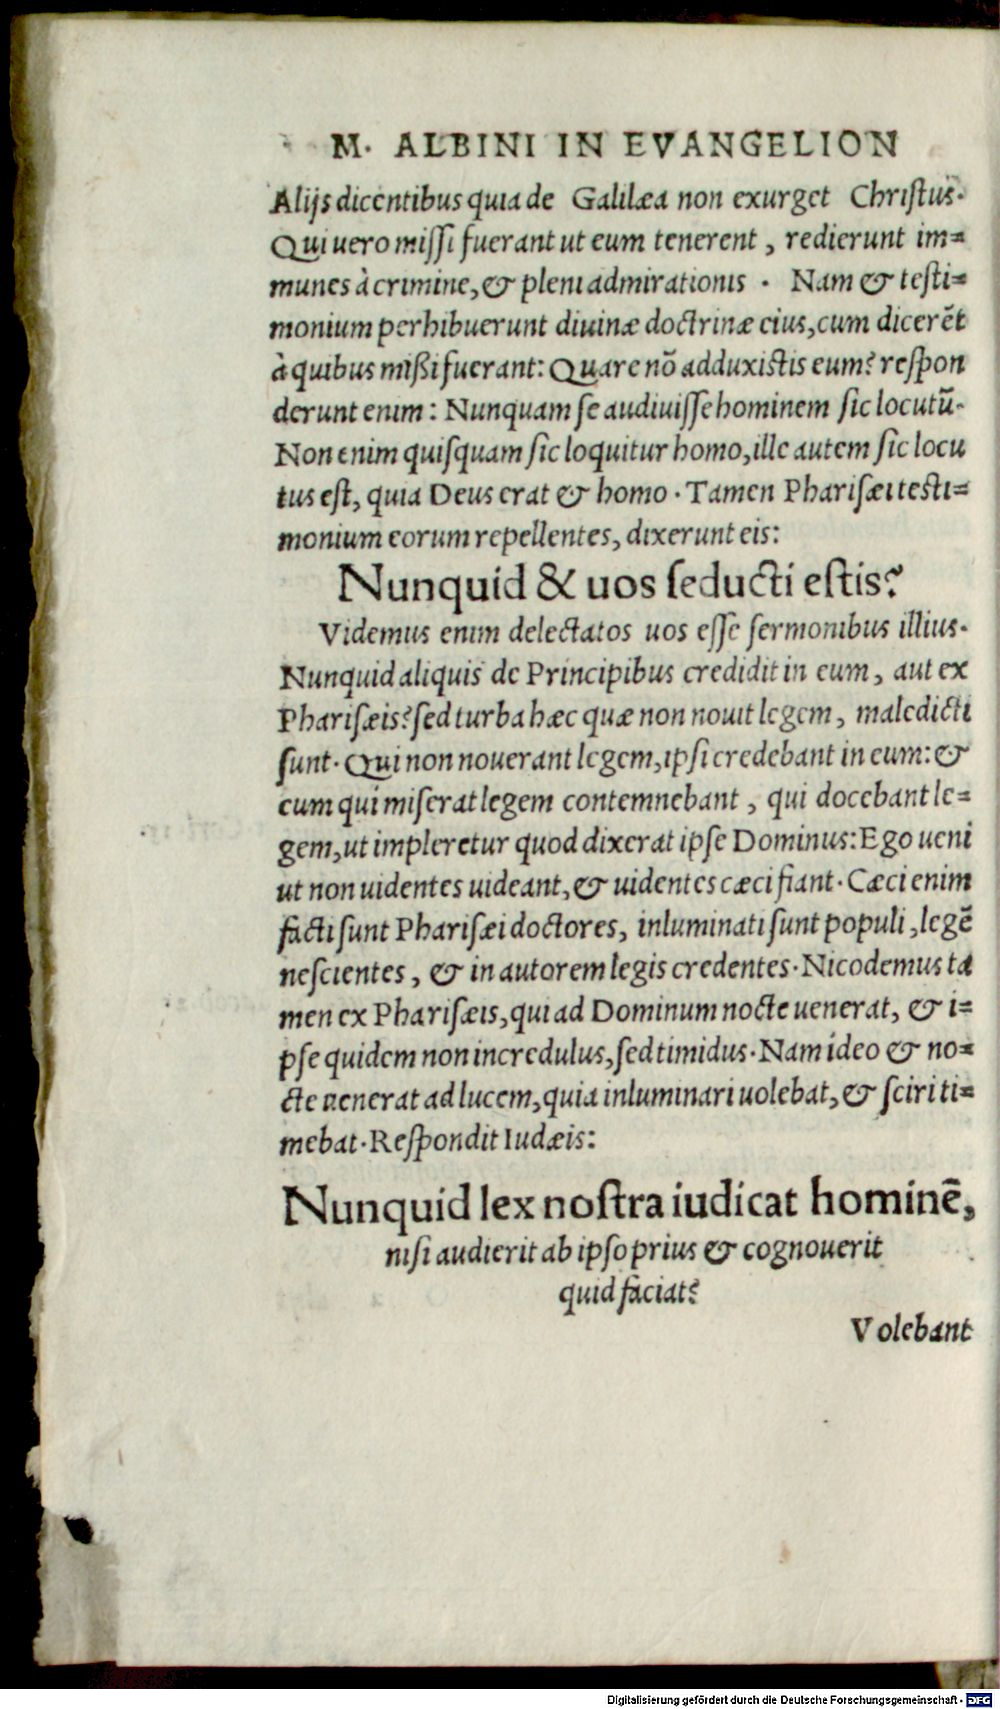 M. ALBINI IN EVANGELION
Alijs dicentibus quia de Galilæa non exurget Christus.
Qui uero missi fuerant ut eum tenerent, redierunt im=
munes à crimine, & pleni admirationis. Nam & testi=
monium perhibuerunt diuinæ doctrinæ eius, cum dicerẽt
à quibus mißi fuerant: Quare nõ adduxistis eum? respon
derunt enim: Nunquam se audiuisse hominem sic locutũ.
Non enim quisquam sic loquitur homo, ille autem sic locu
tus est, quia Deus erat & homo. Tamen Pharisæi testi=
monium eorum repellentes, dixerunt eis:
Nunquid & uos seducti estis?
Videmus enim delectatos uos esse sermonibus illius.
Nunquid aliquis de Principibus credidit in eum, aut ex
Pharisæis? sed turba hæc quæ non nouit legem, maledicti
sunt. Qui non nouerant legem, ipsi credebant in eum: &
eum qui miserat legem contemnebant, qui docebant le=
gem, ut impleretur quod dixerat ipse Dominus: Ego ueni
ut non uidentes uideant, & uidentes cæci fiant. Cæci enim
facti sunt Pharisæi doctores, inluminati sunt populi, legẽ
nescientes, & in autorem legis credentes. Nicodemus ta
men ex Pharisæis, qui ad Dominum nocte uenerat, & i=
pse quidem non incredulus, sed timidus. Nam ideo & no=
cte uenerat ad lucem, quia inluminari uolebat, & sciri ti=
mebat. Respondit Iudæis:
Nunquid lex nostra iudicat hominẽ,
nisi audierit ab ipso prius & cognouerit
quid faciat?
Volebant
Digitalisierung gefördert durch die Deutsche Forschungsgemeinschaft - DFG